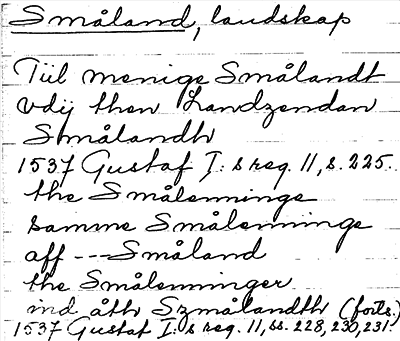 Småland, landskap
Tiil menige Smålandt
vdij then Landzendan
Smålandh
1537 Gustaf I:s reg. 11, s. 225.
the Smålenninge
samme Smålenninge
aff --- Småland
the Smålenninger
ind åth Szmålandth (forts.)
1537 Gustaf I:s reg. 11, ss. 228, 230, 231